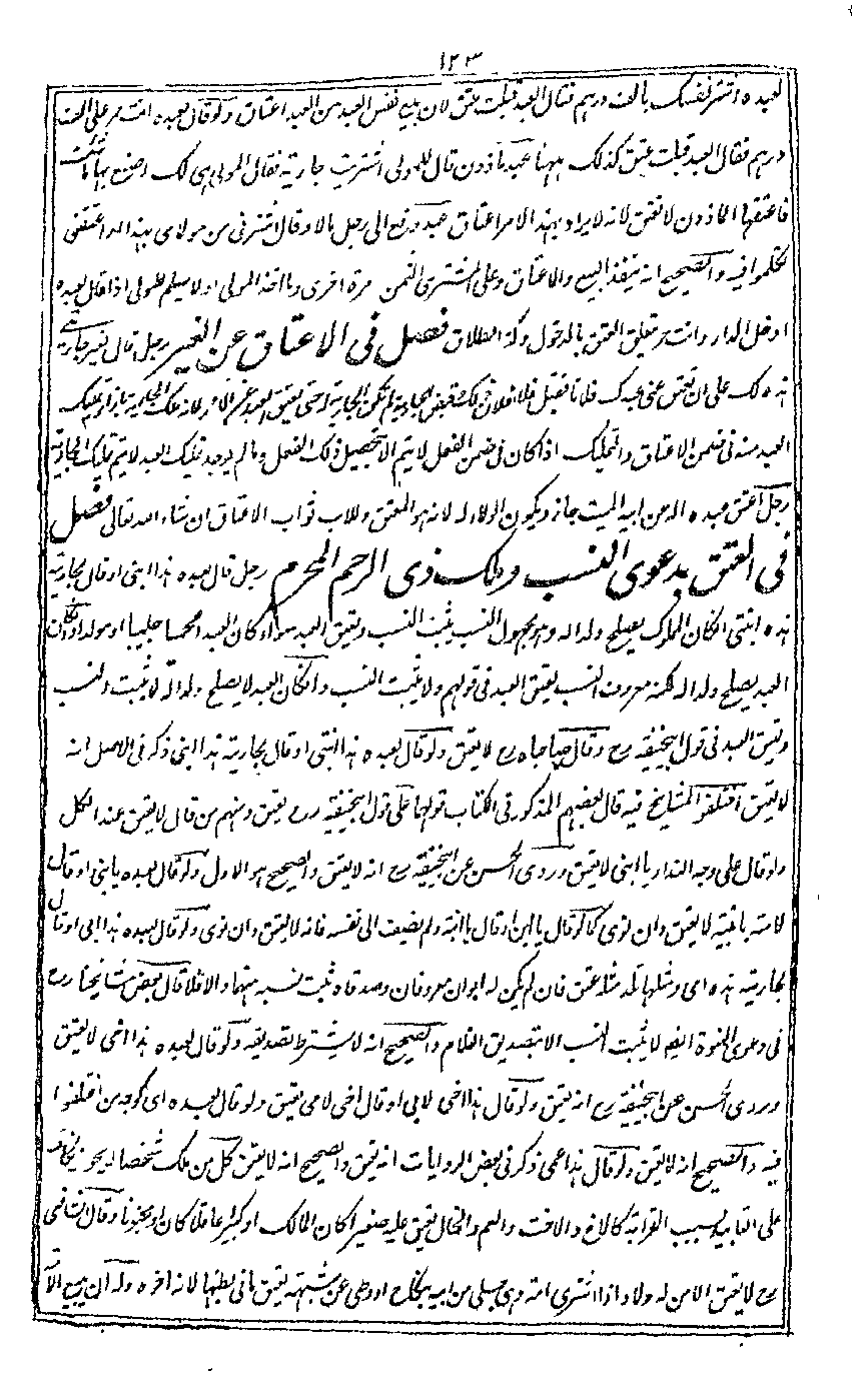 ١٢٣
لعبده اشتر نفسك بالف درهم فقال العبد قبلت عتق لان بيع نفس العبد من العبد اعتاق ولو قال لعبده انت حر على الف
درهم فقال العبد قبلت عتق كذلك ههنا عبد ماذون قال للمولى اشتريت جارية فقال المولى هي لك اصنع بها ما شئت
فاعتقها الماذون لا تعتق لانه لا يراد بهذا الامر اعتاق عبد دفع الى رجل مالا وقال اشترني من مولاي بهذا اعتقني
تكلموا فيه والصحيح انه ينفذ البيع والاعتاق وعلى المشترى الثمن مرة اخرى وما اخذ المولى اولا يسلم للمولى اذا قال لعبده
ادخل الدار وانت حر تعلق العتق بالدخول وكذا الطلاق فصل في الاعتاق عن الغير رجل قال لغيره جاريتي
هذه لك على ان تعتق عني عبدك فلانا فقبل
العبد منه في ضمن الاعتاق والتمليك اذا كان في ضمن الفعل لا يتم الا بتحصيل ذلك الفعل وما لم يوجد تمليك العبد لا يتم تمليك الجارية
رجل اعتق عبده عن ابيه الميت جاز ويكون الولاء له لانه هو المعتق وللاب ثواب الاعتاق ان شاء الله تعالى فصل
في العتق بدعوى النسب وملك ذي الرحم المحرم رجل قال لعبده هذا ابني او قال لجاريته
هذه ابنتي ان كان المملوك يصلح ولدا له وهو مجهول النسب يثبت النسب ويعتق العبد سواء كان العبد اعجميا جليبا او مولدا وان كان
العبد يصلح ولدا له لكنه معروف النسب يعتق العبد في قولهم ولا يثبت النسب وان كان العبد لا يصلح ولدا له لا يثبت النسب
ويعتق العبد في قول ابيحنيفة رح وقال صاحباه رح لا يعتق ولو قال لعبده هذا ابنتي او قال لجاريته هذا ابني ذكر في الاصل انه
لا يعتق اختلف المشايخ فيه قال بعضهم المذكور في الكتاب قولهما على قول ابيحنيفة رح يعتق ومنهم من قال لا يعتق عند الكل
ولو قال على وجه النداء يا ابني لا يعتق وروى الحسن عن ابيحنيفة رح انه لا يعتق والصحيح هو الاول ولو قال لعبده يا بني او قال
لامته يا بنية لا يعتق وان نوى كما لو قال يا ابن او قال يا ابنة ولم يضف الى نفسه فانه لا يعتق وان نوى ولو قال لعبده هذا ابي او قال
لجاريته هذه امي ومثلها يلد مثله عتق فان لم يكن له ابوان معروفان وصدقاه ثبت نسبه منهما والا فلا قال بعض مشايخنا رح
في دعوى البنوة ايضا لا يثبت النسب الا بتصديق الغلام والصحيح انه لا يشترط تصديقه ولو قال لعبده هذا اخي لا يعتق
وروى الحسن عن ابيحنيفة رح انه يعتق ولو قال هذا اخي لابي او قال اخي لامي يعتق ولو قال لعبده اى كوجه من اختلفوا
فيه والصحيح انه لا يعتق ولو قال هذا عمي ذكر في بعض الروايات انه يعتق والصحيح انه لا يعتق كل من ملك شخصا لا يجوز نكاحه
على التابيد بسبب القرابة كالاخ والاخت والعم والخال يعتق عليه صغيرا كان المالك او كبيرا عاقلا كان او مجنونا وقال الشافعي
رح لا يعتق الا من له ولاد اذا اشترى امة وهي حبلى من ابيه بنكاح او وطى عن شبهة يعتق ما في بطنها لانه اخوه وله ان يبيع الام